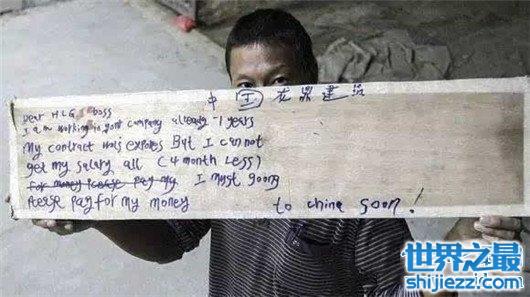 中国 建
Dear HLG boss
I am working in yout company already -1 years
My contract wais expores But I can not
get my salary all (4 month less)
for money Please pay my I must goong
Please pay for my money to china soon!
世界之最
shijiezzi.com